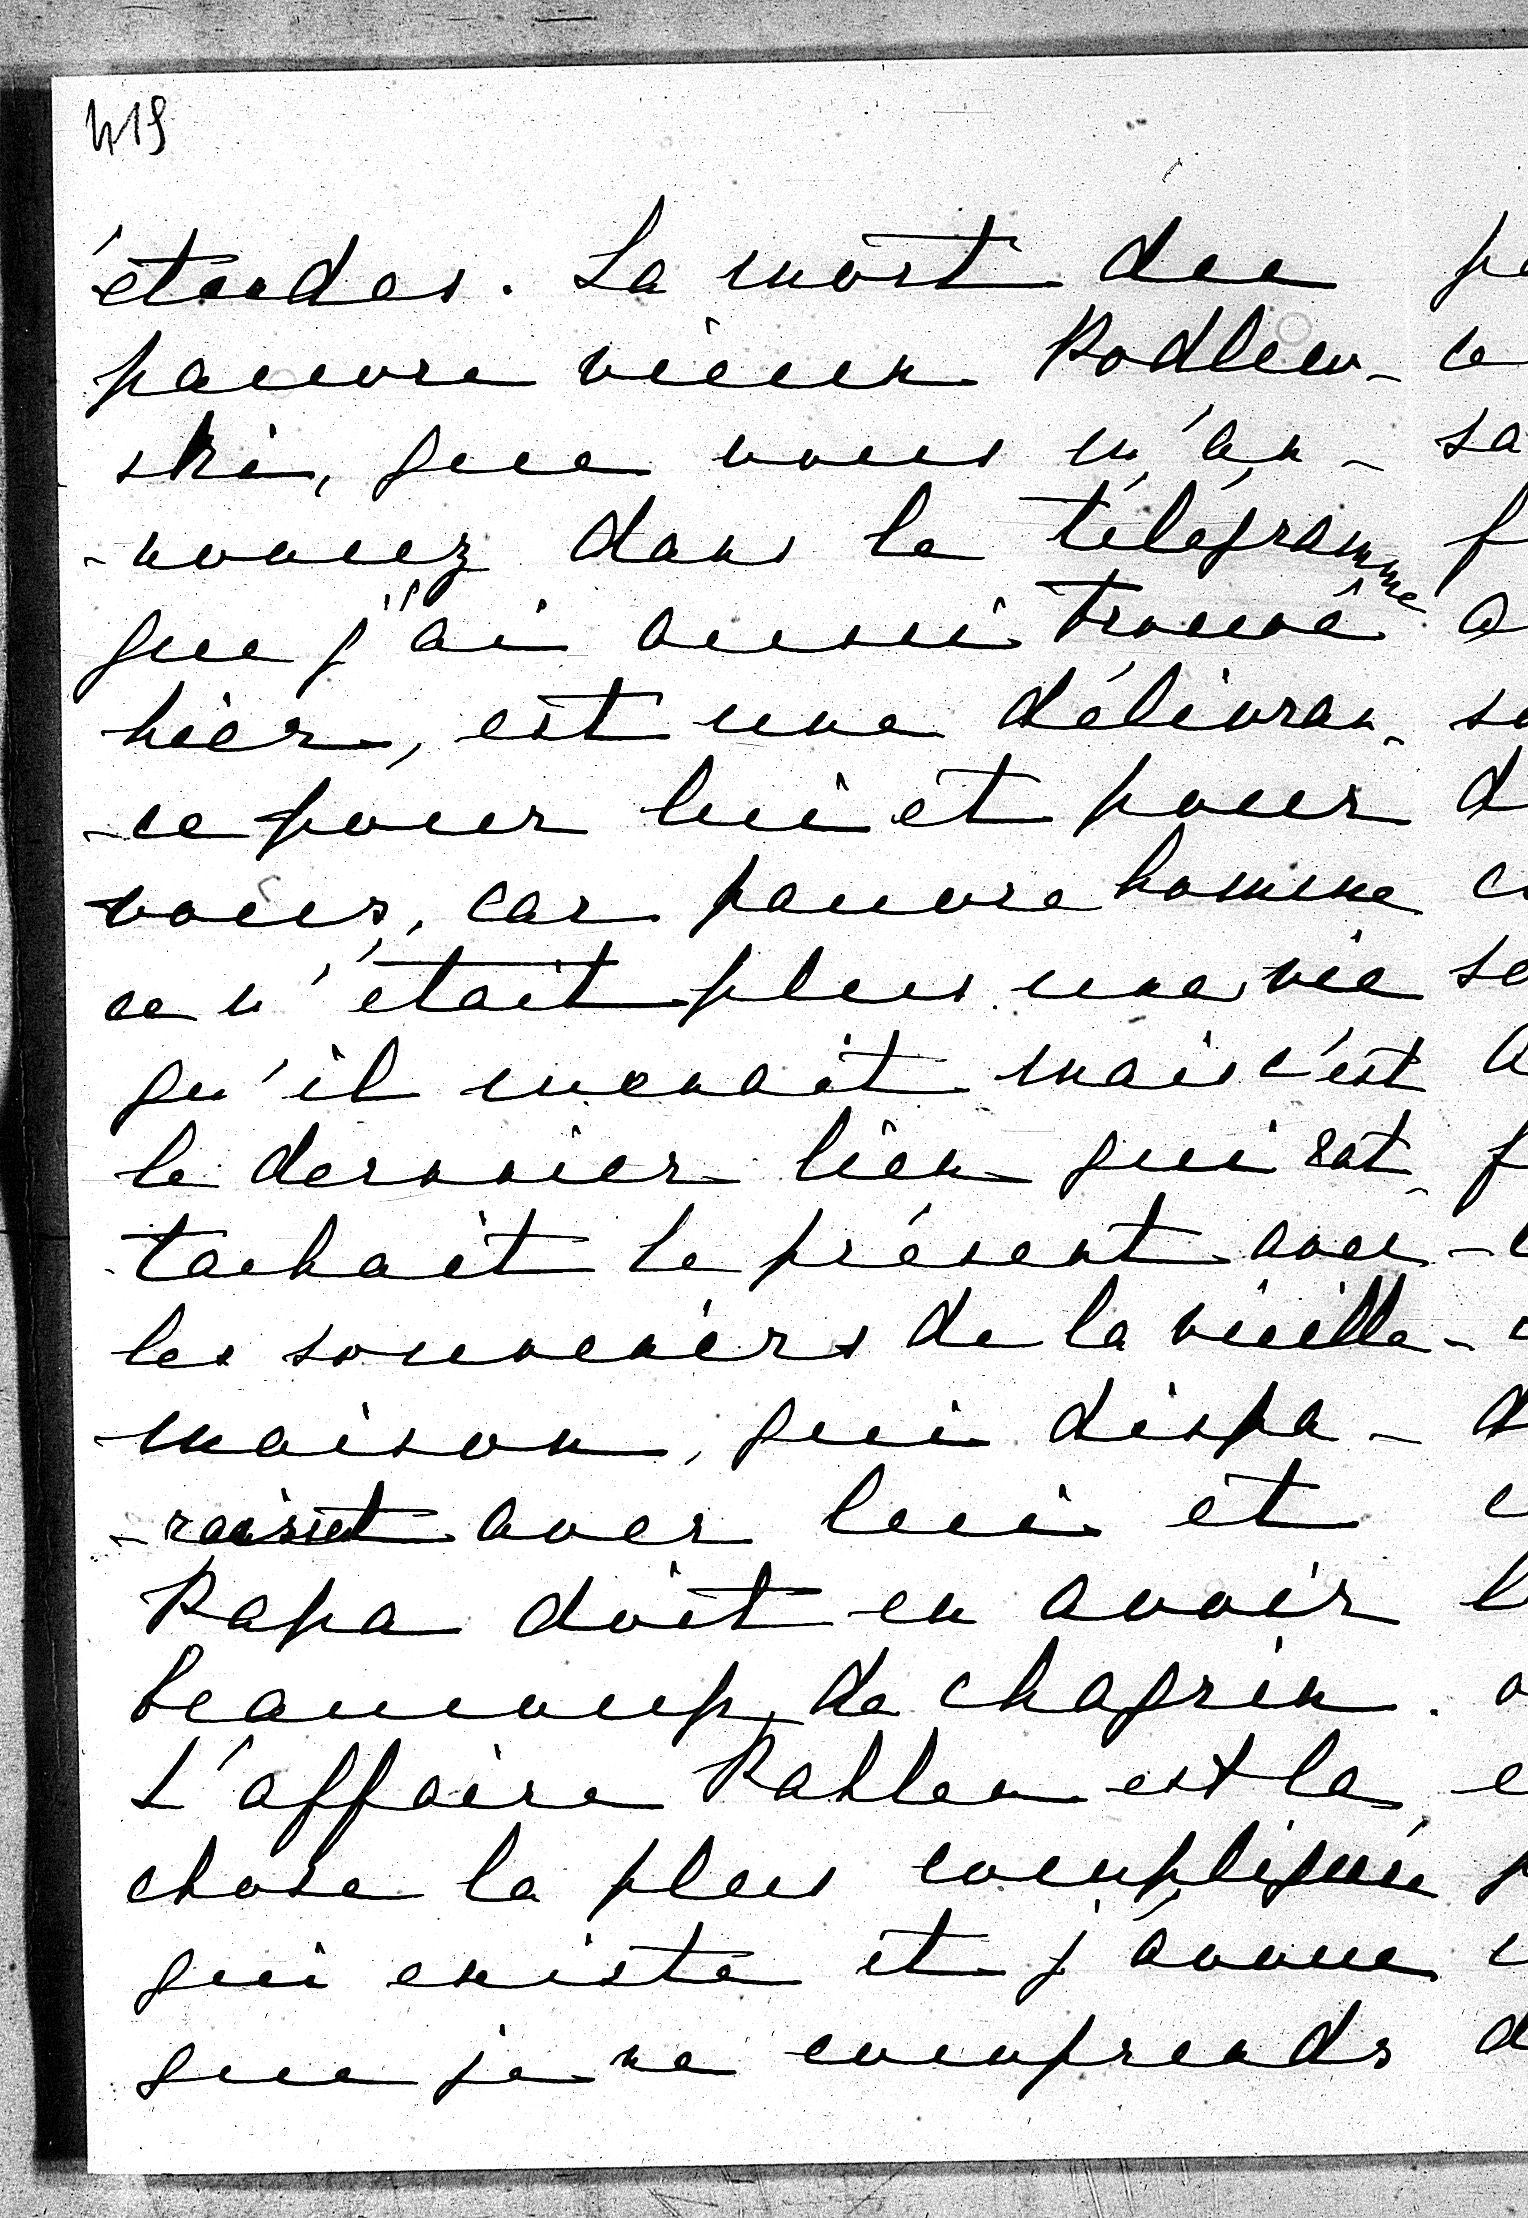 419
études. La mort du
pauvre vieux Podlew-
ski, que vous m'an-
-noncez dans le télégramme
que j'ai aussi trouvé
hier, est une délivran-
-ce pour lui et pour
vous, car pauvre homme
ce n'était plus une vie
qu'il menait mais c'est
le dernier lien qui rat-
tachait le présent avec
les souvenirs de la vieille
maison, qui dispa-
-raissait avec lui et
Papa doit en avoir
beaucoup de chagrin.
L'affaire est la
chose la plus compliquée
qui existe et j'avoue
que je ne comprends